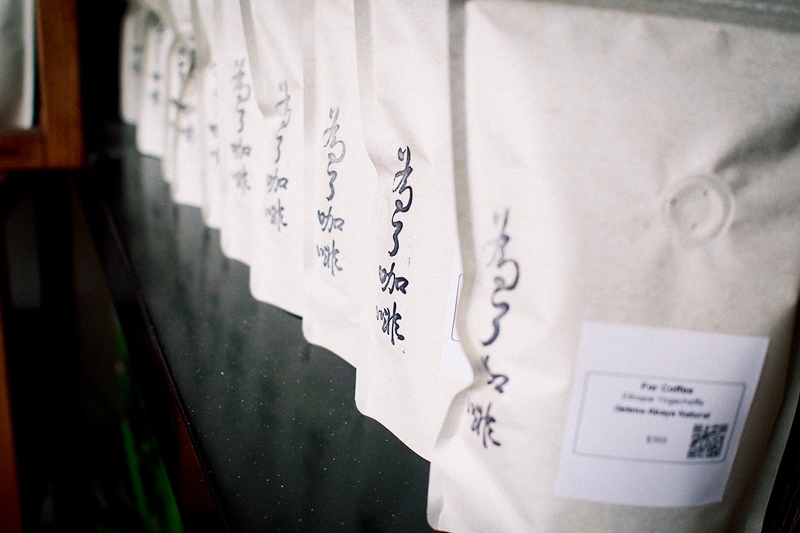 為了咖啡
為了咖啡
為了咖啡
為了咖啡
為了咖啡
For Coffee
Ethiopia Yirgacheffe
Natural